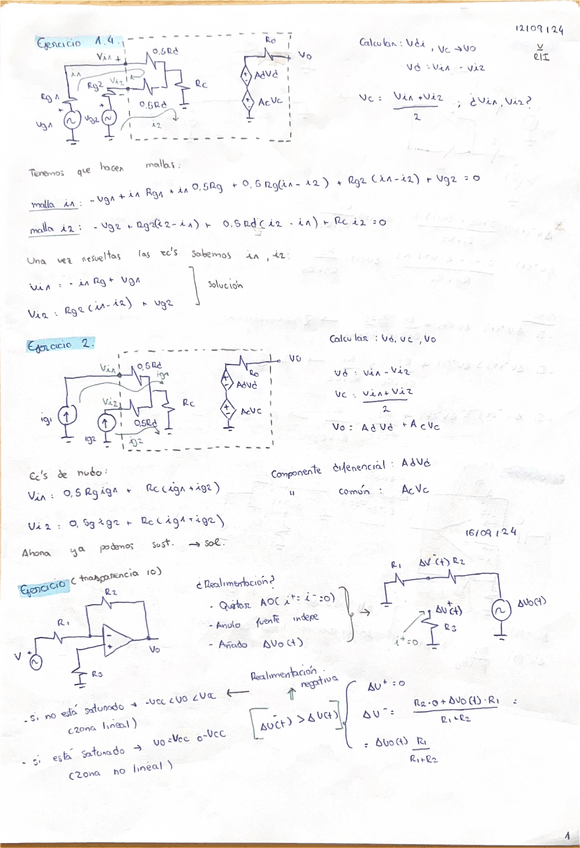 12/09/24
V
RII
Ejercicio 1.4.
Vi1 +
0,5Rd
Ro
Vo
i1
Vi2
Rg1
Rg2
0,5Rd
Rc
AdVd
AcVc
Vg1
Vg2
i2
Calcular: Vdi, Vc → Vo
Vd = Vi1 - Vi2
Vc = Vi1 + Vi2 / 2 ; ¿Vi1, Vi2?
Tenemos que hacer mallas:
malla i1: -Vg1 + i1 Rg1 + i1 0,5Rg + 0,5Rg(i1 - i2) + Rg2 (i1-i2) + Vg2 = 0
malla i2: -Vg2 + Rg2(i2-i1) + 0,5Rd(i2 - i1) + Rc i2 = 0
Una vez resueltas las ec's sabemos i1, i2:
Vi1 = - i1 Rg + Vg1
Vi2 = Rg2 (i1-i2) + Vg2
solución
Ejercicio 2.
Vi1
0,5Rd
ig1
Ro
Vo
Vi2
Rc
AdVd
AcVc
0,5Rd
ig1
ig2
ig2
Calcular: Vd, Vc, Vo
Vd = Vi1 - Vi2
Vc = Vi1 + Vi2 / 2
Vo = AdVd + AcVc
Ec's de nudo:
Vi1 = 0,5 Rg ig1 + Rc (ig1 + ig2)
Vi2 = 0,5g ig2 + Rc (ig1 + ig2)
Ahora ya podemos sust. → sol.
Componente diferencial: AdVd
" común: AcVc
16/09/24
Ejercicio (transparencia 10)
R2
R1
V
Vo
R3
¿Realimentación?
- Quitar AO (i+ = i- = 0)
- Anulo fuente indepe
- Añado ΔVo(t)
R1 ΔV-(t) R2
ΔV+(t)
R3
i+=0
ΔVo(t)
Realimentación negativa
- si no está saturado → -Vcc < Vo < Vcc
(zona lineal)
- si está saturado → Vo = Vcc o -Vcc
(zona no lineal)
[ΔV-(t) > ΔV+(t)]
ΔV+ = 0
ΔV- = R2·0 + ΔVo(t)·R1 / R1+R2 =
= ΔVo(t) R1 / R1+R2
1